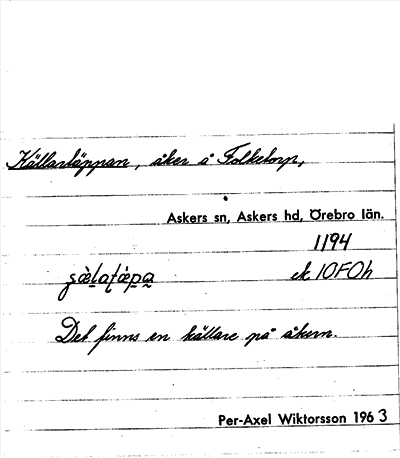 Källartäppan, åker å Folketorp,
Askers sn, Askers hd, Örebro län.
1194
ek 10F0h
Det finns en källare på åkern.
Per-Axel Wiktorsson 1963